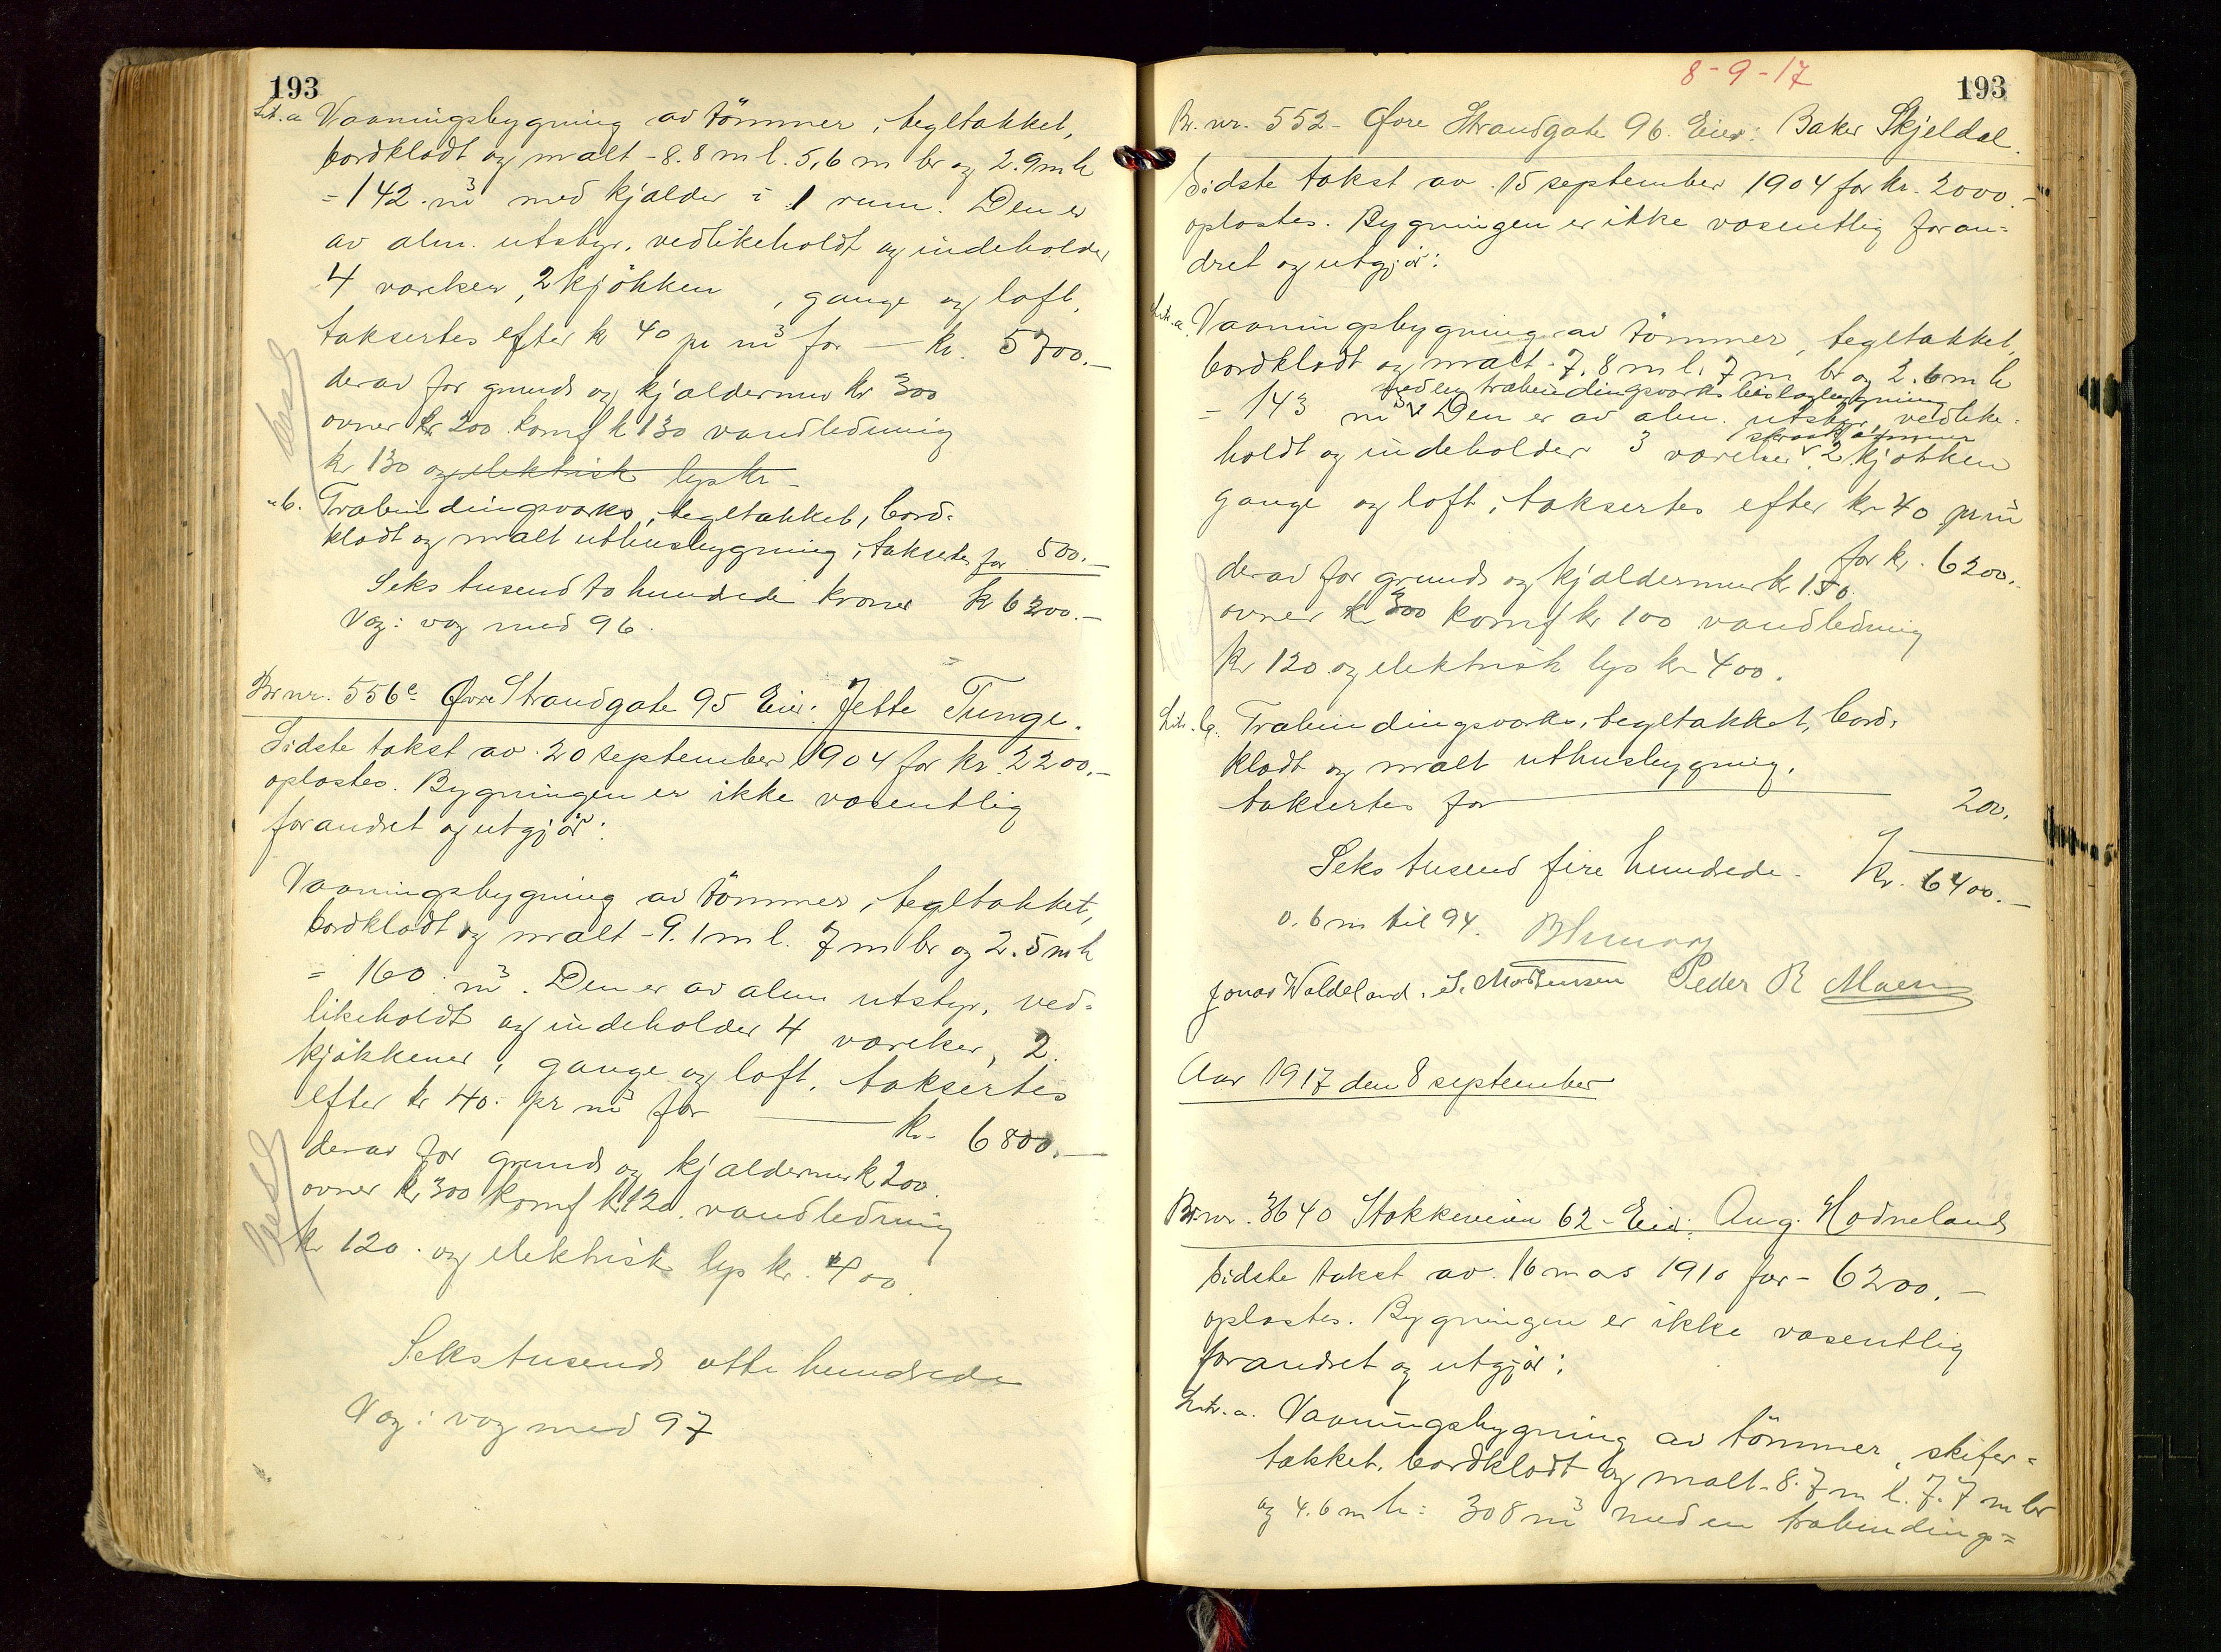 193
Lit. a Vaaningsbygning av tömmer, tegltækket,
bordklædt og malt - 8.8 m l. 5,6 m br og 2.9 m h
= 142 m³ med kjælder i 1 rum. Den er
av alm. utstyr, vedlikeholdt og indeholder
4 værelser, 2 kjökken, gange og loft,
taksertes efter kr 40 pr m³ for — kr. 5700.-
derav for grund og kjældermur kr 300
ovner kr 200 komf kr 130 vandledning
kr 130 og elektrisk lys kr -
" b. Træbindingsværks, tegltækket, bord-
klædt og malt uthusbygning, taksertes for 500.-
Seks tusend to hundrede kroner kr 6200.-
Væg i væg med 96.
Br nr. 556c Øvre Strandgate 95 Eier: Jette Tunge.
Sidste takst av 20 september 1904 for kr. 2200.-
oplæstes. Bygningen er ikke væsentlig
forandret og utgjør:
Vaaningsbygning av tömmer, tegltækket,
bordklædt og malt - 9.1 m l. 7 m br og 2.5 m h
= 160 m³. Den er av alm utstyr, ved-
likeholdt og indeholder 4 værelser, 2
kjökkener, gange og loft, taksertes
efter kr 40.- pr m³ for — kr. 6800.-
derav for grund og kjældermur kr 200.
ovner kr 300 komf kr 120. vandledning
kr 120. og elektrisk lys kr. 400.
Sekstusend otte hundrede
Væg i væg med 97
8-9-17
193
Br. nr. 552 - Øvre Strandgate 96. Eier: Baker Skjeldal.
Sidste takst av 15 september 1904 for kr. 2000.-
oplæstes. Bygningen er ikke væsentlig foran-
dret og utgjør:
Litr. a. Vaaningsbygning av tömmer, tegltækket,
bordklædt og malt - 7.8 m l. 7 m br og 2.6 m h
med en træbindingsværks
= 143 m³ Den er av alm. utstyr, vedlike-
holdt og indeholder 3 værelser, 2 kjøkken
gange og loft, taksertes efter kr 40 pr m³
for kr. 6200.-
derav for grund og kjældermur kr 150.
ovner kr 300 komf kr 100 vandledning
kr 120 og elektrisk lys kr 400.
Litr. b. Træbindingsværks, tegltækket, bord-
klædt og malt uthusbygning,
taksertes for — 200.
Seks tusend fire hundrede - Kr. 6400.-
0.6 m til 94.
Jonas Waldeland. S. Mortensen Peder R
Aar 1917 den 8 september
Br. nr. 3640 Stokkeveien 62 - Eier: Aug. Hodneland
Sidste takst av 16 mars 1910 for - 6200.-
oplæstes. Bygningen er ikke væsentlig
forandret og utgjør:
Litr. a. Vaaningsbygning av tömmer, skifer-
tækket, bordklædt og malt - 8.7 m l. 7.7 m br
og 4.6 m h = 308 m³ med en træbindings-